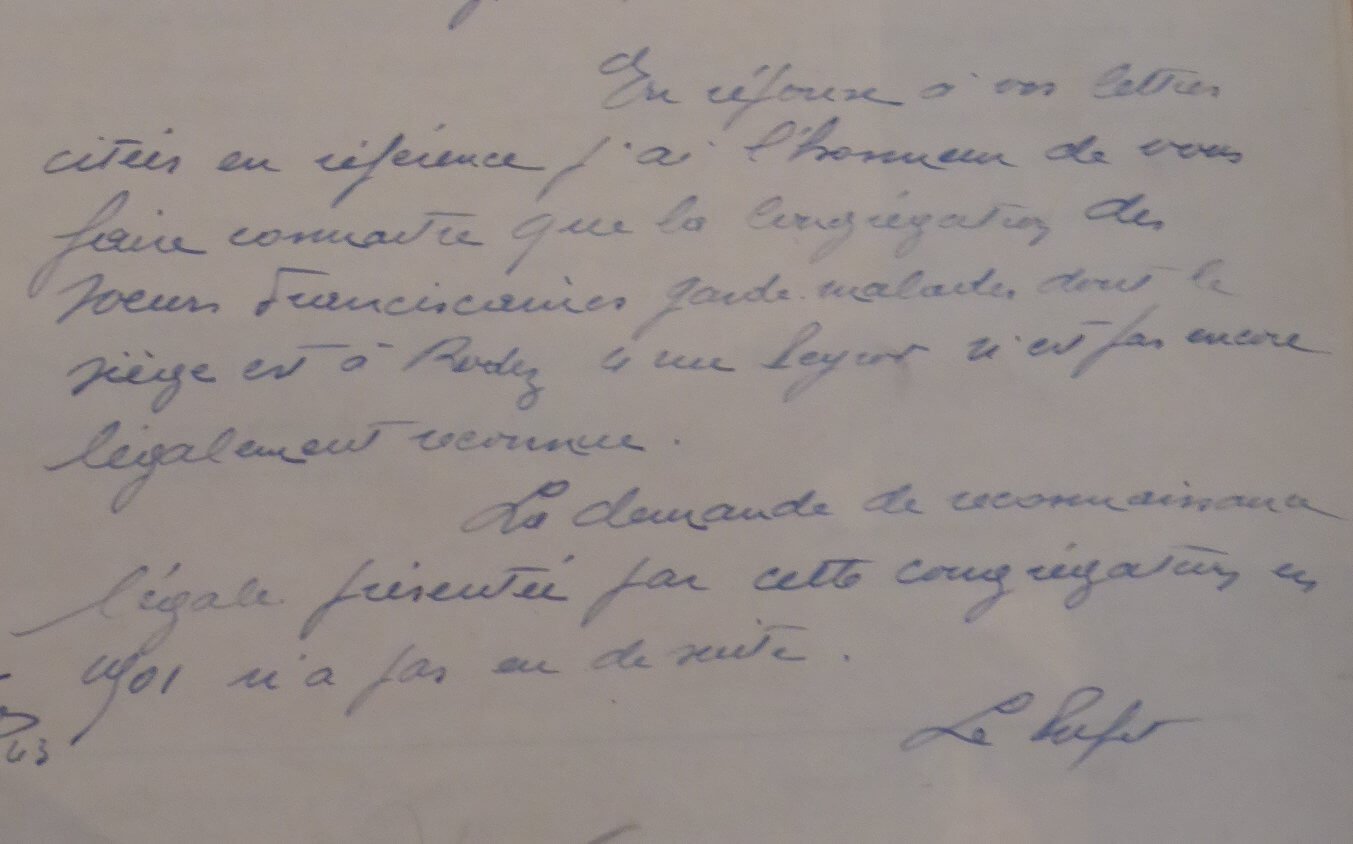 En réponse à vos lettres
citées en référence j'ai l'honneur de vous
faire connaitre que la congrégation des
soeurs Franciscaines garde-malades dont le
siège est à Rodez 4 rue Peyrot n'est pas encore
légalement reconnue.
La demande de reconnaissance
légale présentée par cette congrégation en
1901 n'a pas eu de suite.
Le Préfet
43